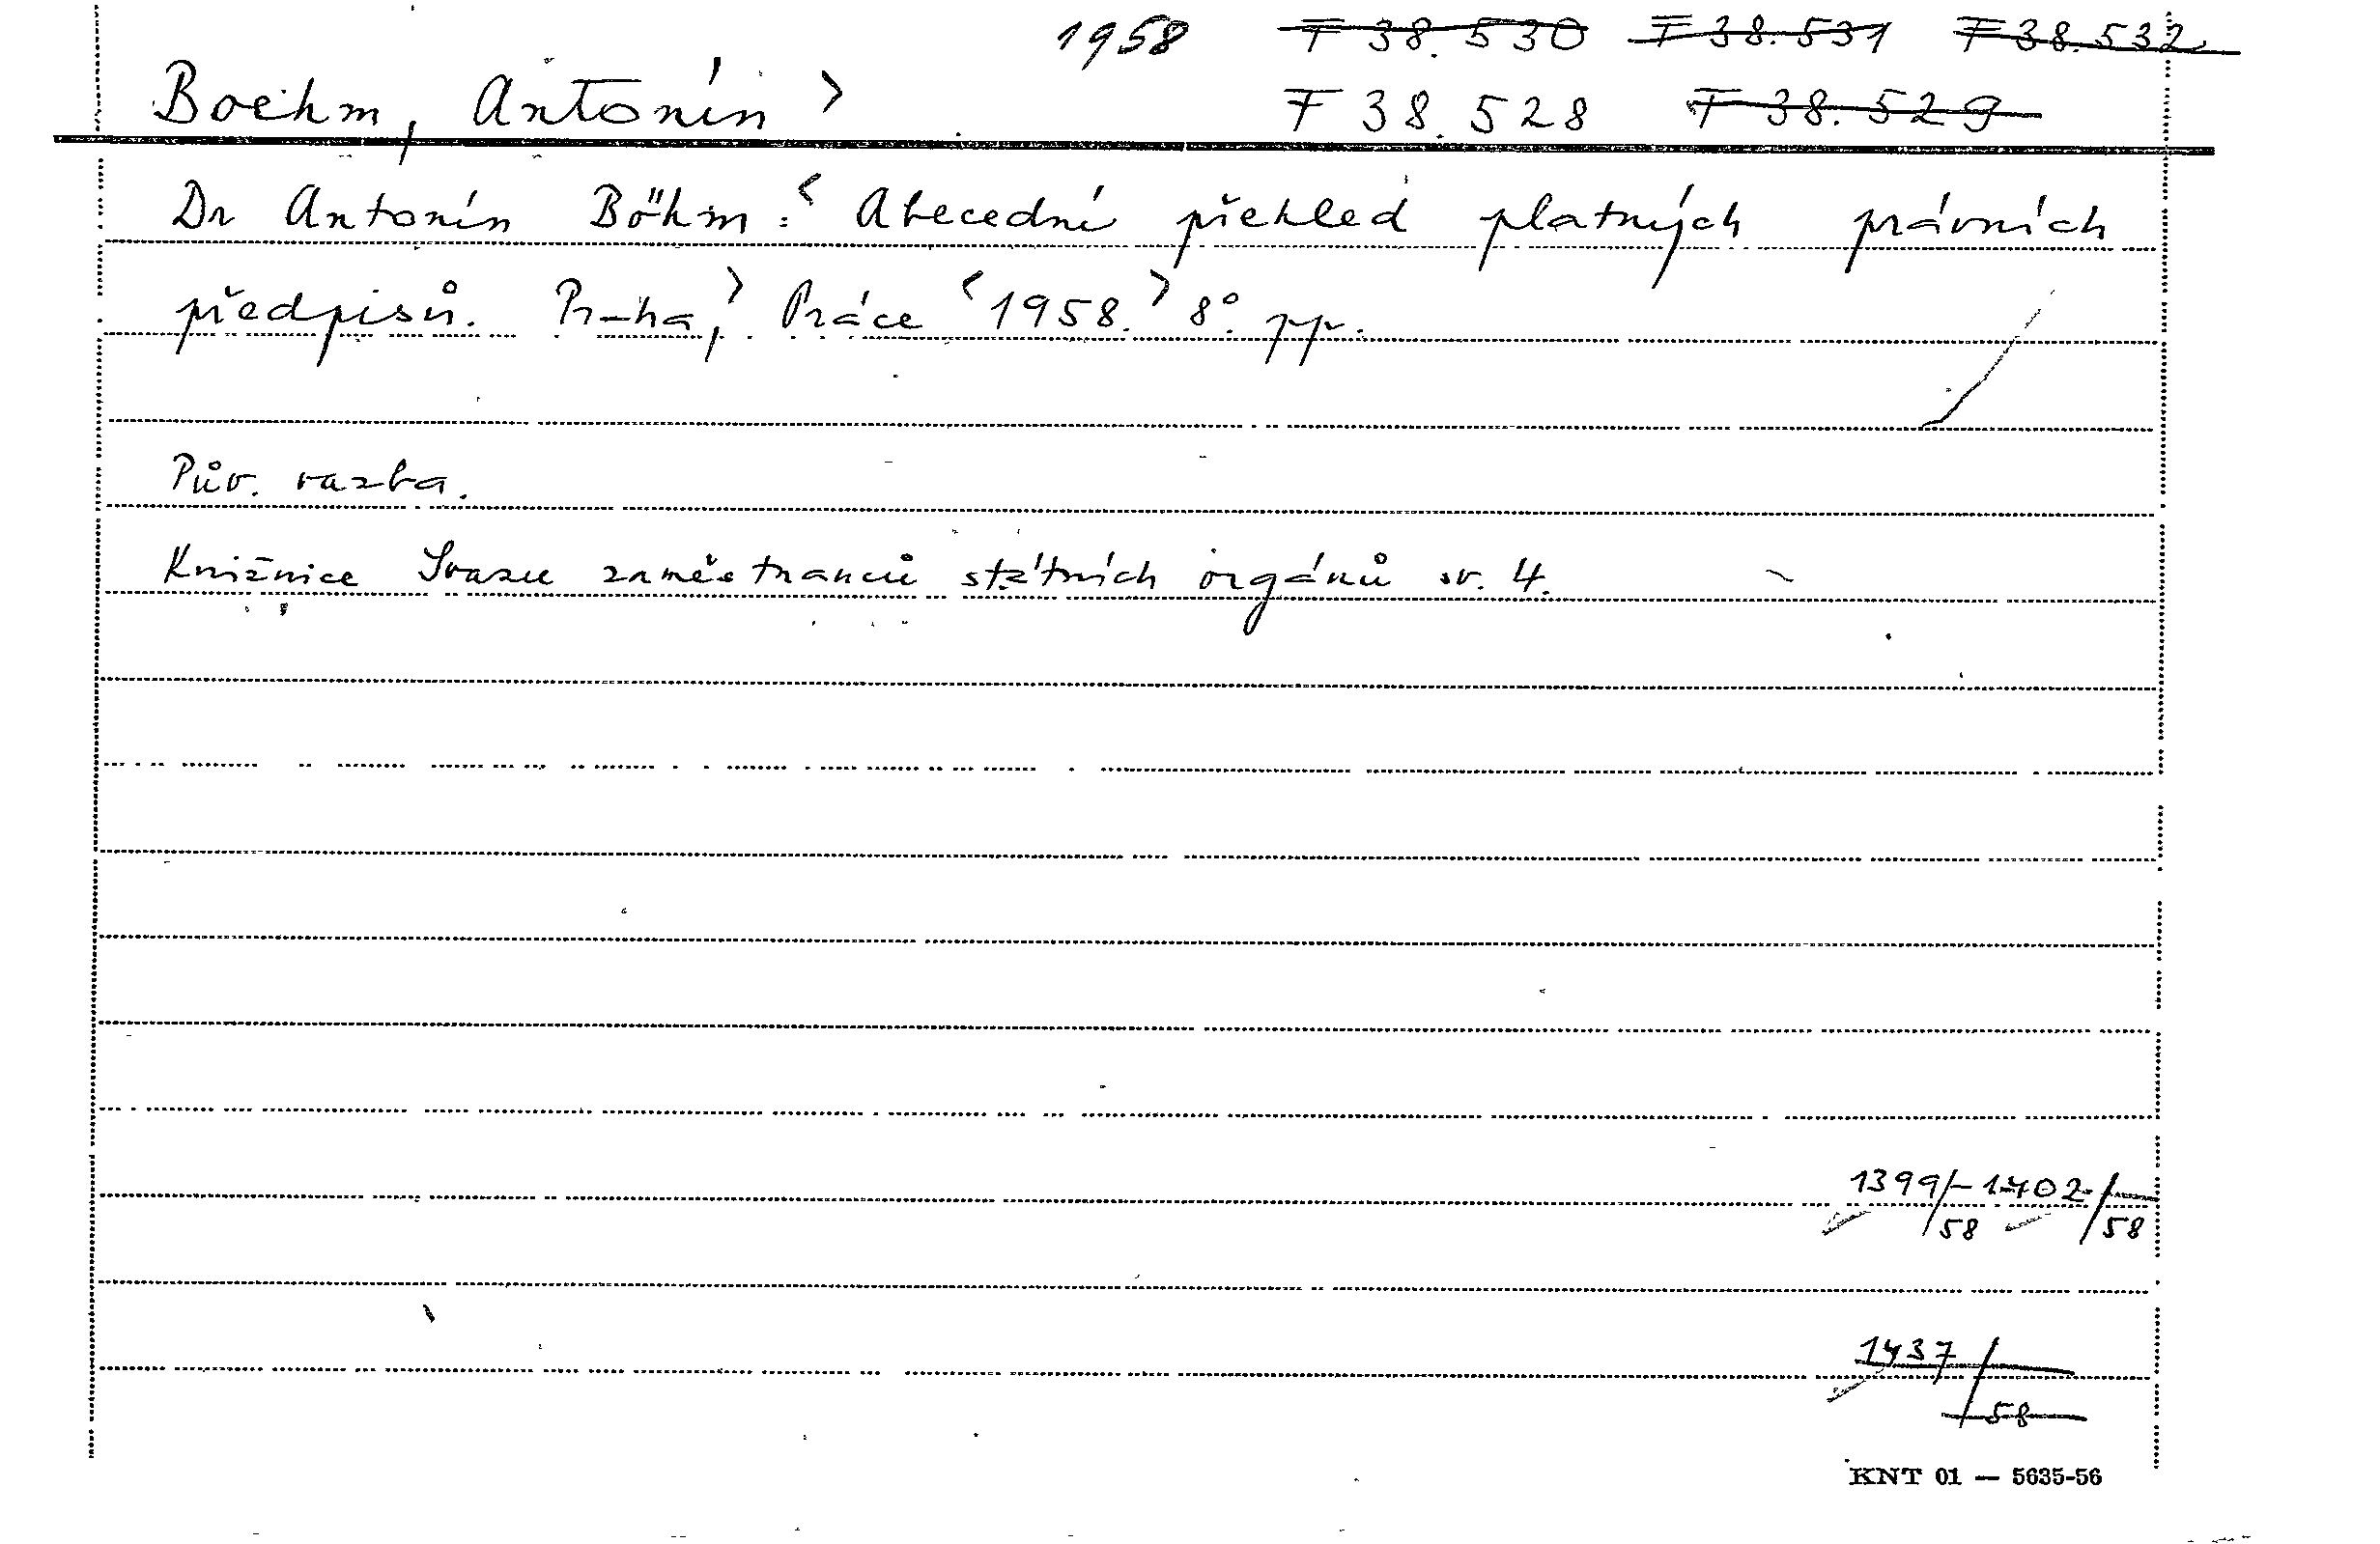 1958 F 38.530 F 38.531 F 38.532
Boehm, Antonín > F 38.528 F 38.529
Dr Antonín Böhm: < Abecední přehled platných právních
předpisů. Praha, > Práce < 1958. > 8°. pp.
Pův. vazba.
Knižnice Svazu zaměstnanců státních orgánů sv. 4.
1399/58 – 1402/58
1437/58
KNT 01 — 5635-56